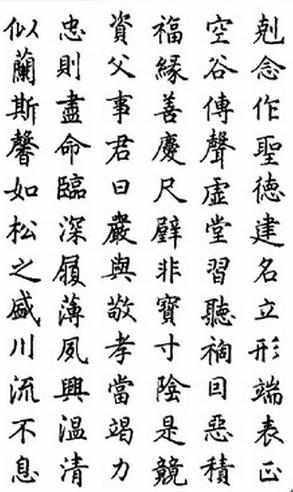 剋念作聖德建名立形端表正
空谷傳聲虛堂習聽禍因惡積
福緣善慶尺璧非寶寸陰是競
資父事君曰嚴與敬孝當竭力
忠則盡命臨深履薄夙興溫清
似蘭斯馨如松之盛川流不息